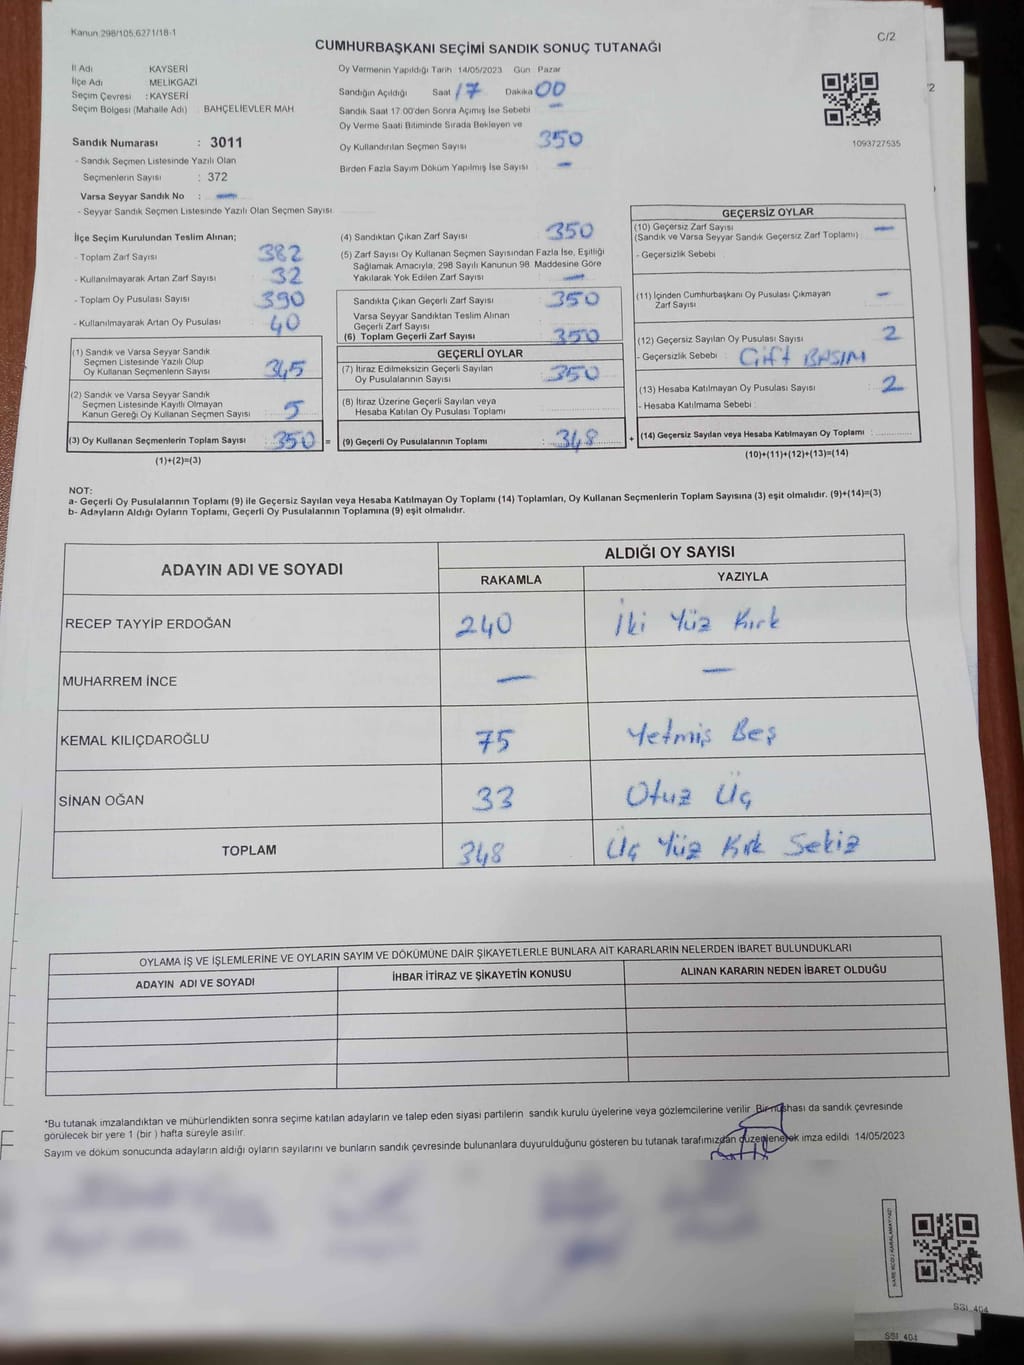 Kanun 298/105,6271/18-1
C/2
CUMHURBAŞKANI SEÇİMİ SANDIK SONUÇ TUTANAĞI
İl Adı KAYSERİ
İlçe Adı MELİKGAZİ
Seçim Çevresi : KAYSERİ
Seçim Bölgesi (Mahalle Adı) BAHÇELİEVLER MAH
Sandık Numarası : 3011
- Sandık Seçmen Listesinde Yazılı Olan
Seçmenlerin Sayısı : 372
Varsa Seyyar Sandık No : —
- Seyyar Sandık Seçmen Listesinde Yazılı Olan Seçmen Sayısı
Oy Vermenin Yapıldığı Tarih 14/05/2023 Gün Pazar
Sandığın Açıldığı Saat 17 Dakika 00
Sandık Saat 17 00'den Sonra Açımış İse Sebebi —
Oy Verme Saati Bitiminde Sırada Bekleyen ve
Oy Kullandırılan Seçmen Sayısı 350
Birden Fazla Sayım Döküm Yapılmış İse Sayısı —
1093727535
İlçe Seçim Kurulundan Teslim Alınan;
- Toplam Zarf Sayısı : 382
- Kullanılmayarak Artan Zarf Sayısı : 32
- Toplam Oy Pusulası Sayısı : 390
- Kullanılmayarak Artan Oy Pusulası : 40
(1) Sandık ve Varsa Seyyar Sandık
Seçmen Listesinde Yazılı Olup
Oy Kullanan Seçmenlerin Sayısı : 345
(2) Sandık ve Varsa Seyyar Sandık
Seçmen Listesinde Kayıtlı Olmayan
Kanun Gereği Oy Kullanan Seçmen Sayısı : 5
(3) Oy Kullanan Seçmenlerin Toplam Sayısı : 350 =
(1)+(2)=(3)
(4) Sandıktan Çıkan Zarf Sayısı : 350
(5) Zarf Sayısı Oy Kullanan Seçmen Sayısından Fazla İse, Eşitliği
Sağlamak Amacıyla, 298 Sayılı Kanunun 98. Maddesine Göre
Yakılarak Yok Edilen Zarf Sayısı : —
Sandıkta Çıkan Geçerli Zarf Sayısı : 350
Varsa Seyyar Sandıktan Teslim Alınan
Geçerli Zarf Sayısı
(6) Toplam Geçerli Zarf Sayısı : 350
GEÇERLİ OYLAR
(7) İtiraz Edilmeksizin Geçerli Sayılan
Oy Pusulalarının Sayısı : 350
(8) İtiraz Üzerine Geçerli Sayılan veya
Hesaba Katılan Oy Pusulası Toplamı
(9) Geçerli Oy Pusulalarının Toplamı : 348 +
GEÇERSİZ OYLAR
(10) Geçersiz Zarf Sayısı —
(Sandık ve Varsa Seyyar Sandık Geçersiz Zarf Toplamı)
- Geçersizlik Sebebi :
(11) İçinden Cumhurbaşkanı Oy Pusulası Çıkmayan
Zarf Sayısı —
(12) Geçersiz Sayılan Oy Pusulası Sayısı : 2
- Geçersizlik Sebebi : Çift BASIM
(13) Hesaba Katılmayan Oy Pusulası Sayısı : 2
- Hesaba Katılmama Sebebi :
(14) Geçersiz Sayılan veya Hesaba Katılmayan Oy Toplamı :
(10)+(11)+(12)+(13)=(14)
NOT:
a- Geçerli Oy Pusulalarının Toplamı (9) ile Geçersiz Sayılan veya Hesaba Katılmayan Oy Toplamı (14) Toplamları, Oy Kullanan Seçmenlerin Toplam Sayısına (3) eşit olmalıdır. (9)+(14)=(3)
b- Adayların Aldığı Oyların Toplamı, Geçerli Oy Pusulalarının Toplamına (9) eşit olmalıdır.
ADAYIN ADI VE SOYADI
ALDIĞI OY SAYISI
RAKAMLA YAZIYLA
RECEP TAYYİP ERDOĞAN 240 İki Yüz Kırk
MUHARREM İNCE — —
KEMAL KILIÇDAROĞLU 75 Yetmiş Beş
SİNAN OĞAN 33 Otuz Üç
TOPLAM 348 Üç Yüz Kırk Sekiz
OYLAMA İŞ VE İŞLEMLERİNE VE OYLARIN SAYIM VE DÖKÜMÜNE DAİR ŞİKAYETLERLE BUNLARA AİT KARARLARIN NELERDEN İBARET BULUNDUKLARI
ADAYIN ADI VE SOYADI İHBAR İTİRAZ VE ŞİKAYETİN KONUSU ALINAN KARARIN NEDEN İBARET OLDUĞU
*Bu tutanak imzalandıktan ve mühürlendikten sonra seçime katılan adayların ve talep eden siyasi partilerin sandık kurulu üyelerine veya gözlemcilerine verilir. Bir nüshası da sandık çevresinde
görülecek bir yere 1 (bir ) hafta süreyle asılır.
Sayım ve döküm sonucunda adayların aldığı oyların sayılarını ve bunların sandık çevresinde bulunanlara duyurulduğunu gösteren bu tutanak tarafımızdan düzenlenerek imza edildi 14/05/2023
SSI_404
SSI_404